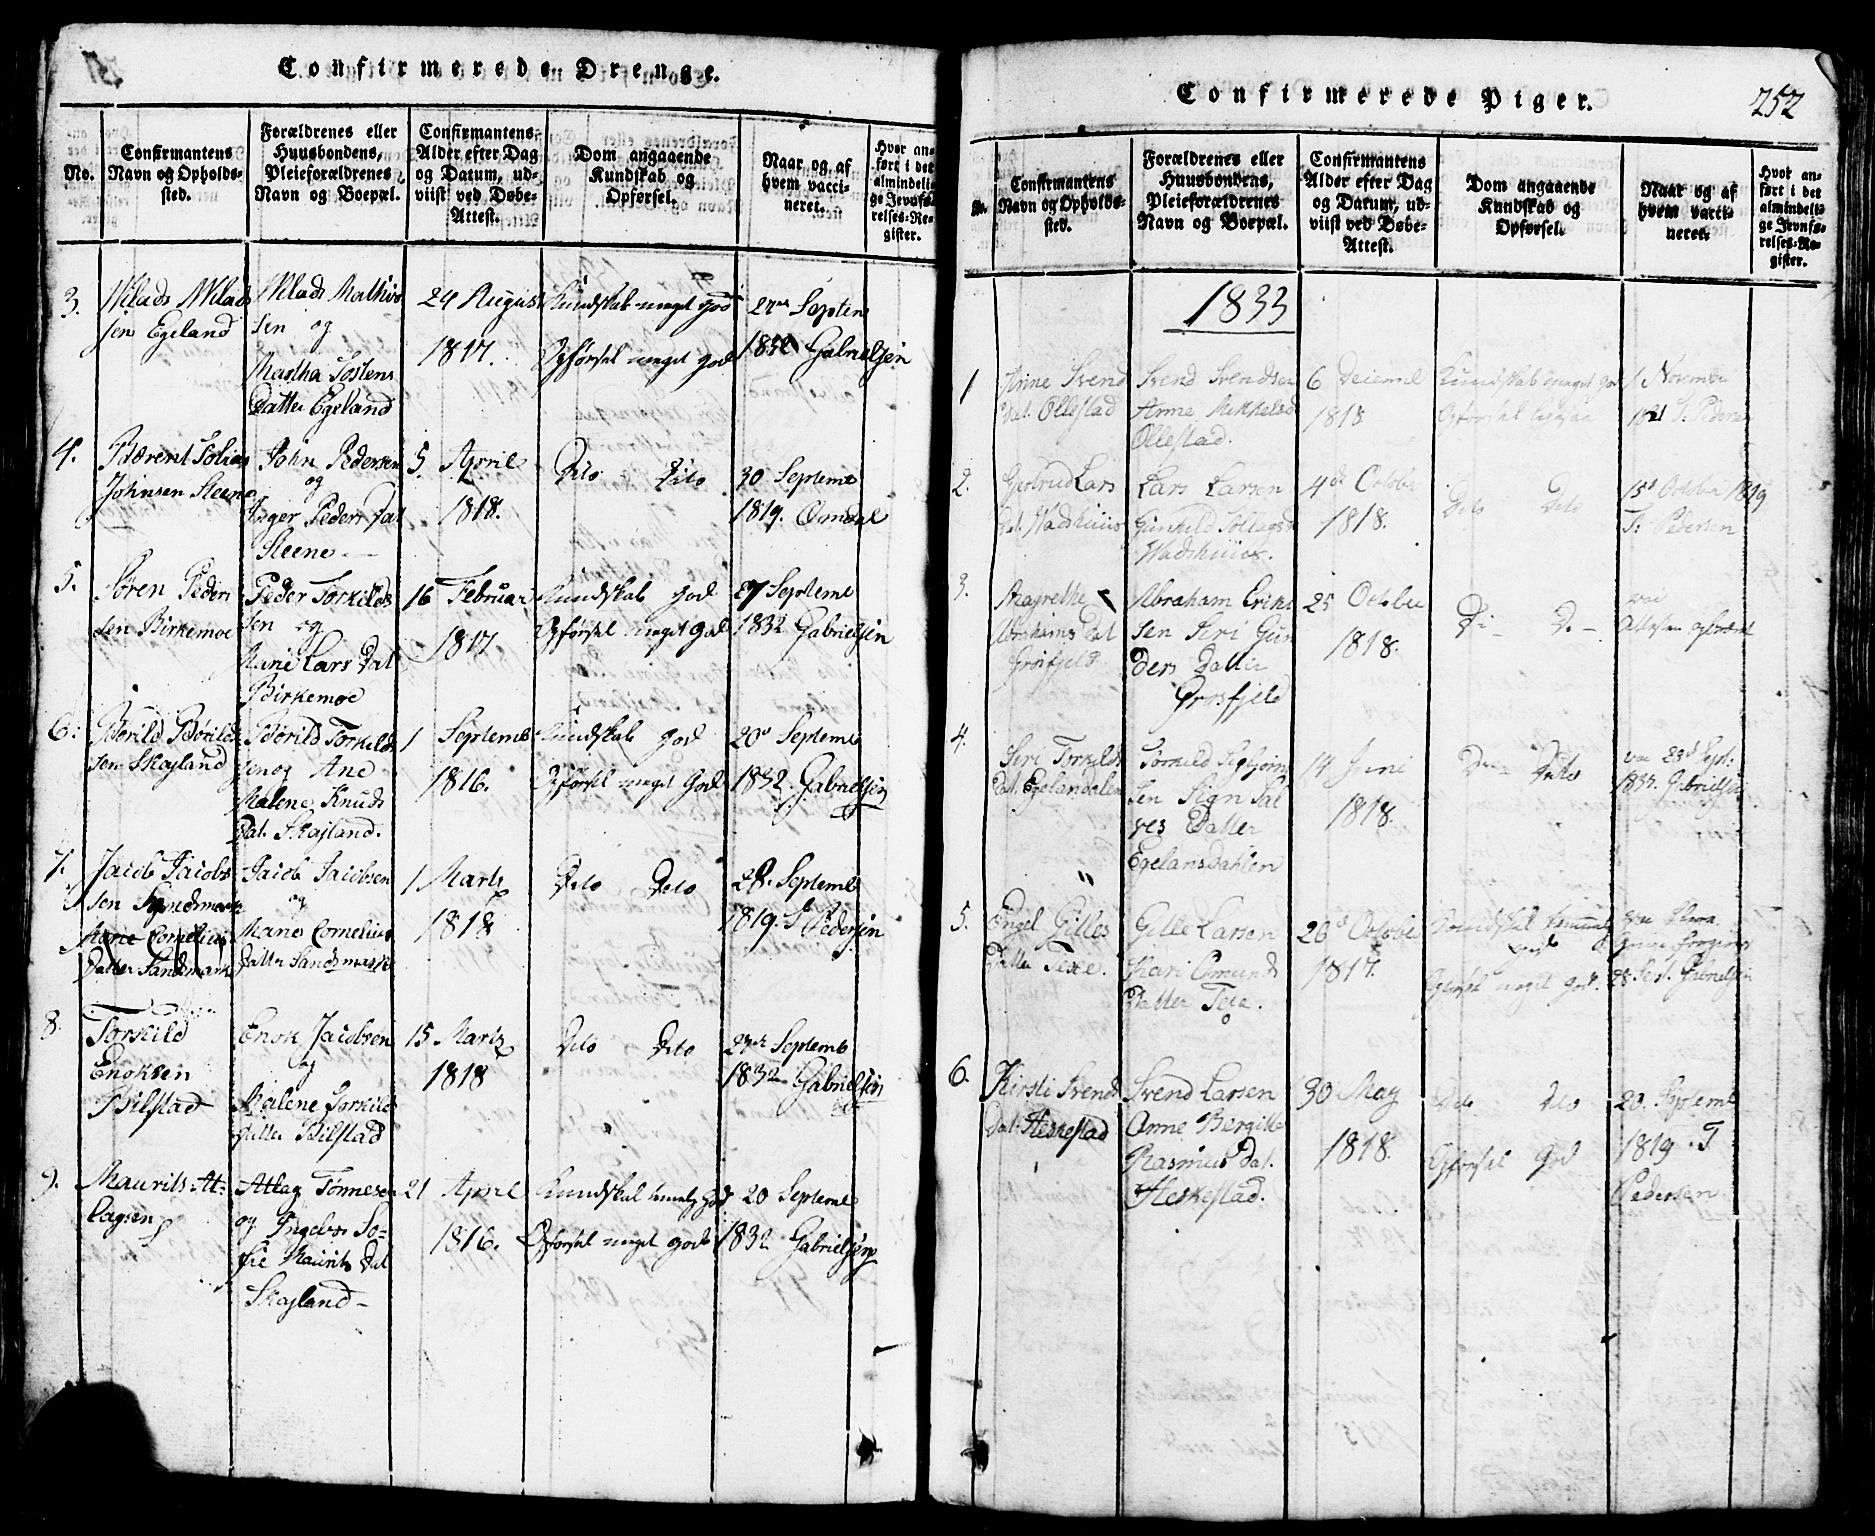 Confirmerede Drenge.
No.
Confirmantens
Navn og Opholds-
sted.
Forældrenes eller
Huusbondens,
Pleieforældrenes
Navn og Boepæl.
Confirmantens
Alder efter Dag
og Datum, ud-
viist ved Døbe-
Attest.
Dom angaaende
Kundskab og
Opførsel.
Naar og af
hvem vacci-
neret.
Hvor an-
ført i det
almindeli-
ge Jevnfø-
relses-Re-
gister.
3.
sen Egeland
sen og
Martha
Datter Egeland
24 August
1817.
Kundskab meget God
Opførsel meget god
27de Septem
Gabrielsen
4.
Johnsen Steene
John Pedersen
og
Inger Peders Dat
Steene
5. April
1818.
Dito Dito
30 Septemb
1819. Omdal
5.
Søren Peder
sen Birkemoe
Peder Torkilds
sen og
Marie Lars Dat
Birkemoe
16 Februar
1817
Kundskab god
Opførsel meget God
27 Septemb
1832 Gabrielsen
6.
Børild Børilds
sen Skajland
Børild Torkild
sen og Ane
Malene Knuds
Dat. Skajland.
1 Septemb
1816.
Kundskab god
Opførsel meget God
20d Septemb
1832. Gabrielsen
7.
Jacob Jacob
sen Sandsmark
Marie Cornelius
Datter Sandsmark
Jacob Jacobsen
og
Marie Cornelius
Datter Sandsmark
1 Marts
1818
Dito Dito
28. Septemb
1819. T Pedersen
8.
Torkild
Enoksen
Bilstad
Enok Jacobsen
og
Malene Torkild
Datter Bilstad
15 Marts
1818
Dito Dito
27de Septemb
1832 Gabrielsen
9.
Maurits At-
lagsen
Atlag Tønnesen
og Ingebor So-
fie Maurits Dat
Skajland
21 April
1816.
Kundskab god
Opførsel meget god
20 Septemb
1832 Gabrielsen
Confirmerede Piger.
252
No.
Confirmantens
Navn og Opholds-
sted.
Forældrenes eller
Huusbondens,
Pleieforældrenes
Navn og Boepæl.
Confirmantens
Alder efter Dag
og Datum, ud-
viist ved Døbe-
Attest.
Dom angaaende
Kundskab og
Opførsel.
Naar og af
hvem vacci-
neret.
Hvor an-
ført i det
almindeli-
ge Jevnfø-
relses-Re-
gister.
1833
1
Svend
Dat. Ollestad
Svend Svendsen
Anne Mikkelsd
Ollestad.
6 Decemb
1818
Kundskab meget god
Opførsel
1 November
1821 T. Peders
2.
Gjertrud Lars
Dat. Wadshuus
Lars Larsen
Gunhild
Wadshuus.
4de October
1818.
Dito Dito
15d October 1819
T. Pedersen
3.
Magrethe
Abrahams Dat
Grosfjeld
Abraham Erik
sen Seri Gun
ders Datter
Grosfjeld
25 October
1818.
4.
Seri Torkilds
Dat. Egelandalen
Torkild Sigbjørn
sen Sign Sal
ves Datter
Egelansdahlen
14 Juni
1818.
Dito
Gabrielsen
5.
Engel Gilles
Datter Texe.
Gille Larsen
Kari Omund
Datter Texe.
26d October
1817.
Opførsel meget God.
Gabrielsen
6.
Kirsti Svend
Dat. Heskestad
Svend Larsen
Anne Bergitte
Rasmus Dat.
Heskestad.
30 May
1818.
Dito Dito
Opførsel God
20. Septemb
1819. T
Pedersen